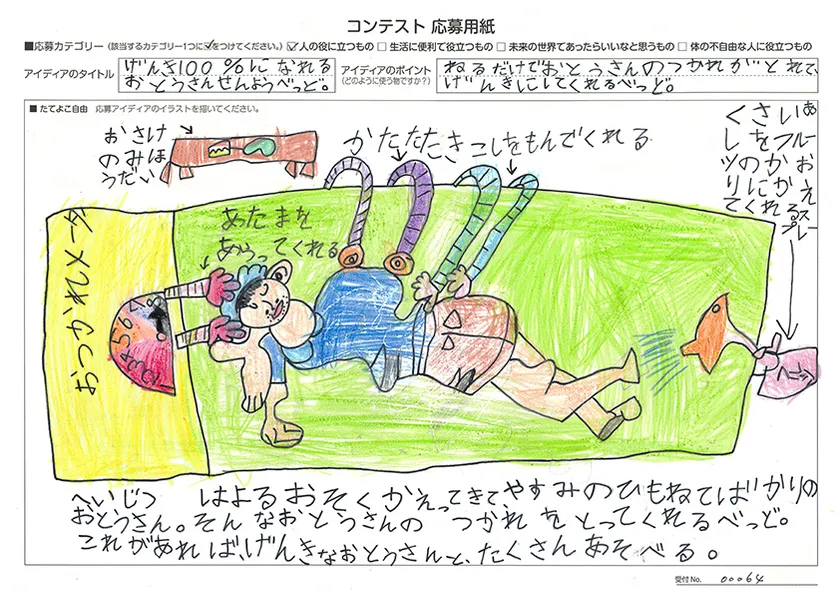 コンテスト 応募用紙
■応募カテゴリー（該当するカテゴリー1つに☑をつけてください。）☑人の役に立つもの □生活に便利で役立つもの □未来の世界であったらいいなと思うもの □体の不自由な人に役立つもの
アイディアのタイトル
げんき100%になれる
おとうさんせんようべっど。
アイディアのポイント
（どのように使う物ですか？）
ねるだけでおとうさんのつかれがとれて、
げんきにしてくれるべっど。
■たてよこ自由 応募アイディアのイラストを描いてください。
おさけ
のみほ
うだい
かたたたき
こしをもんでくれる
くさいあ
しをフルー
ツのかお
りにかえ
てくれるスプレー
あたまを
あらってくれる
おつかれメータ
へいじつ はよるおそくかえってきてやすみのひもねてばかりの
おとうさん。そんなおとうさんの つかれをとってくれるべっど。
これがあれば、げんきなおとうさんと、たくさんあそべる。
受付No. 00064